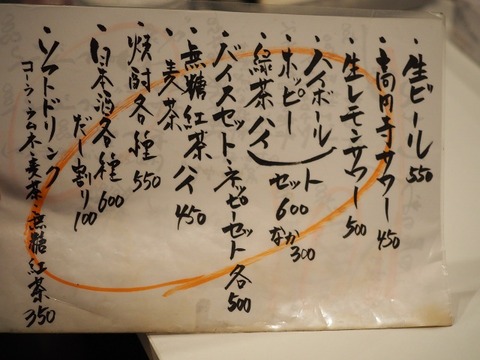 ・生ビール 550
・高円寺サワー 450
・生レモンサワー 500
・ハイボール
・ホッピー セット 600 なか 300
・緑茶ハイ
・バイスセット・ネッピーセット各 500
・無糖紅茶ハイ 450
・麦茶
・焼酎各種 550
・日本酒各種 600
だし割り 100
・ソフトドリンク
コーラ・ラムネ・麦茶・無糖紅茶 350